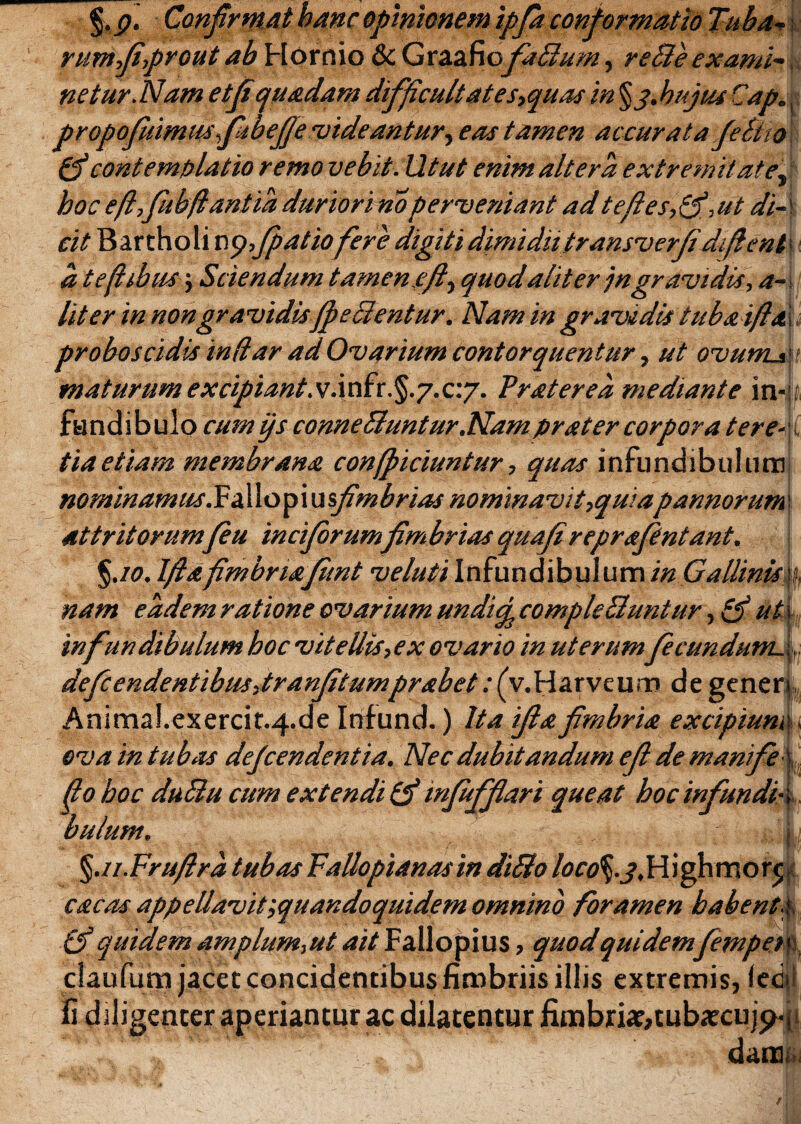 §.9. Confirmat hanc opinionem ipsa conformatio Tuba-
rum,si,prout ab Hornio & Graafio factum, recte exami-
netur.Nam etsi quædam difficultates,quas in §3.hujus Cap.
proposuimus,subesse videantur, eas tamen accurata sectio
& contemplatio removebit. Utut enim alterâ extremitate,
hoc est,substantiâ duriori nō perveniant ad testes,&,ut di-
cit Bartholin9,spatio fere digiti dimidii transversi distent
à testibus; Sciendum tamen est, quod aliter in gravidis, a-
liter in nongravidis spectentur. Nam in gravidis tubæ istæ
proboscidis instar ad Ovarium contorquentur, ut ovum
maturum excipiant.v.infr.§.7.c:7. Prætereà mediante in-
fundibulo cum ijs connectuntur.Nam præter corpora tere-
tia etiam membranæ conspiciuntur, quas infundibulum
nominamus.Fallopius fimbrias nominavit,quia pannorum
attritorum seu incisorum fimbrias quasi repræsentant.
§.10. Istæ fimbriæ sunt veluti Infundibulum in Gallinis,
nam eâdem ratione ovarium undiq; complectuntur, & ut
infundibulum hoc vitellis,ex ovario in uterum secundum
descendentibus,transitum præbet: (v.Harveum de gener.
Animal.exercit.4.de Infund.) Ita istæ fimbriæ excipiunt
ova in tubas descendentia. Nec dubitandum est de manife-
sto hoc ductu cum extendi & insufflari queat hoc infundi-
bulum.
§.11.Frustrà tubas Fallopianas in dicto loco§.3.Highmor9
cæcas appellavit;quandoquidem omninò foramen habent,
& quidem amplum,ut ait Fallopius, quod quidem semper
clausum jacet concidentibus fimbriis illis extremis, sed
si diligenter aperiantur ac dilatentur fimbriæ,tubæcuj9-
dam